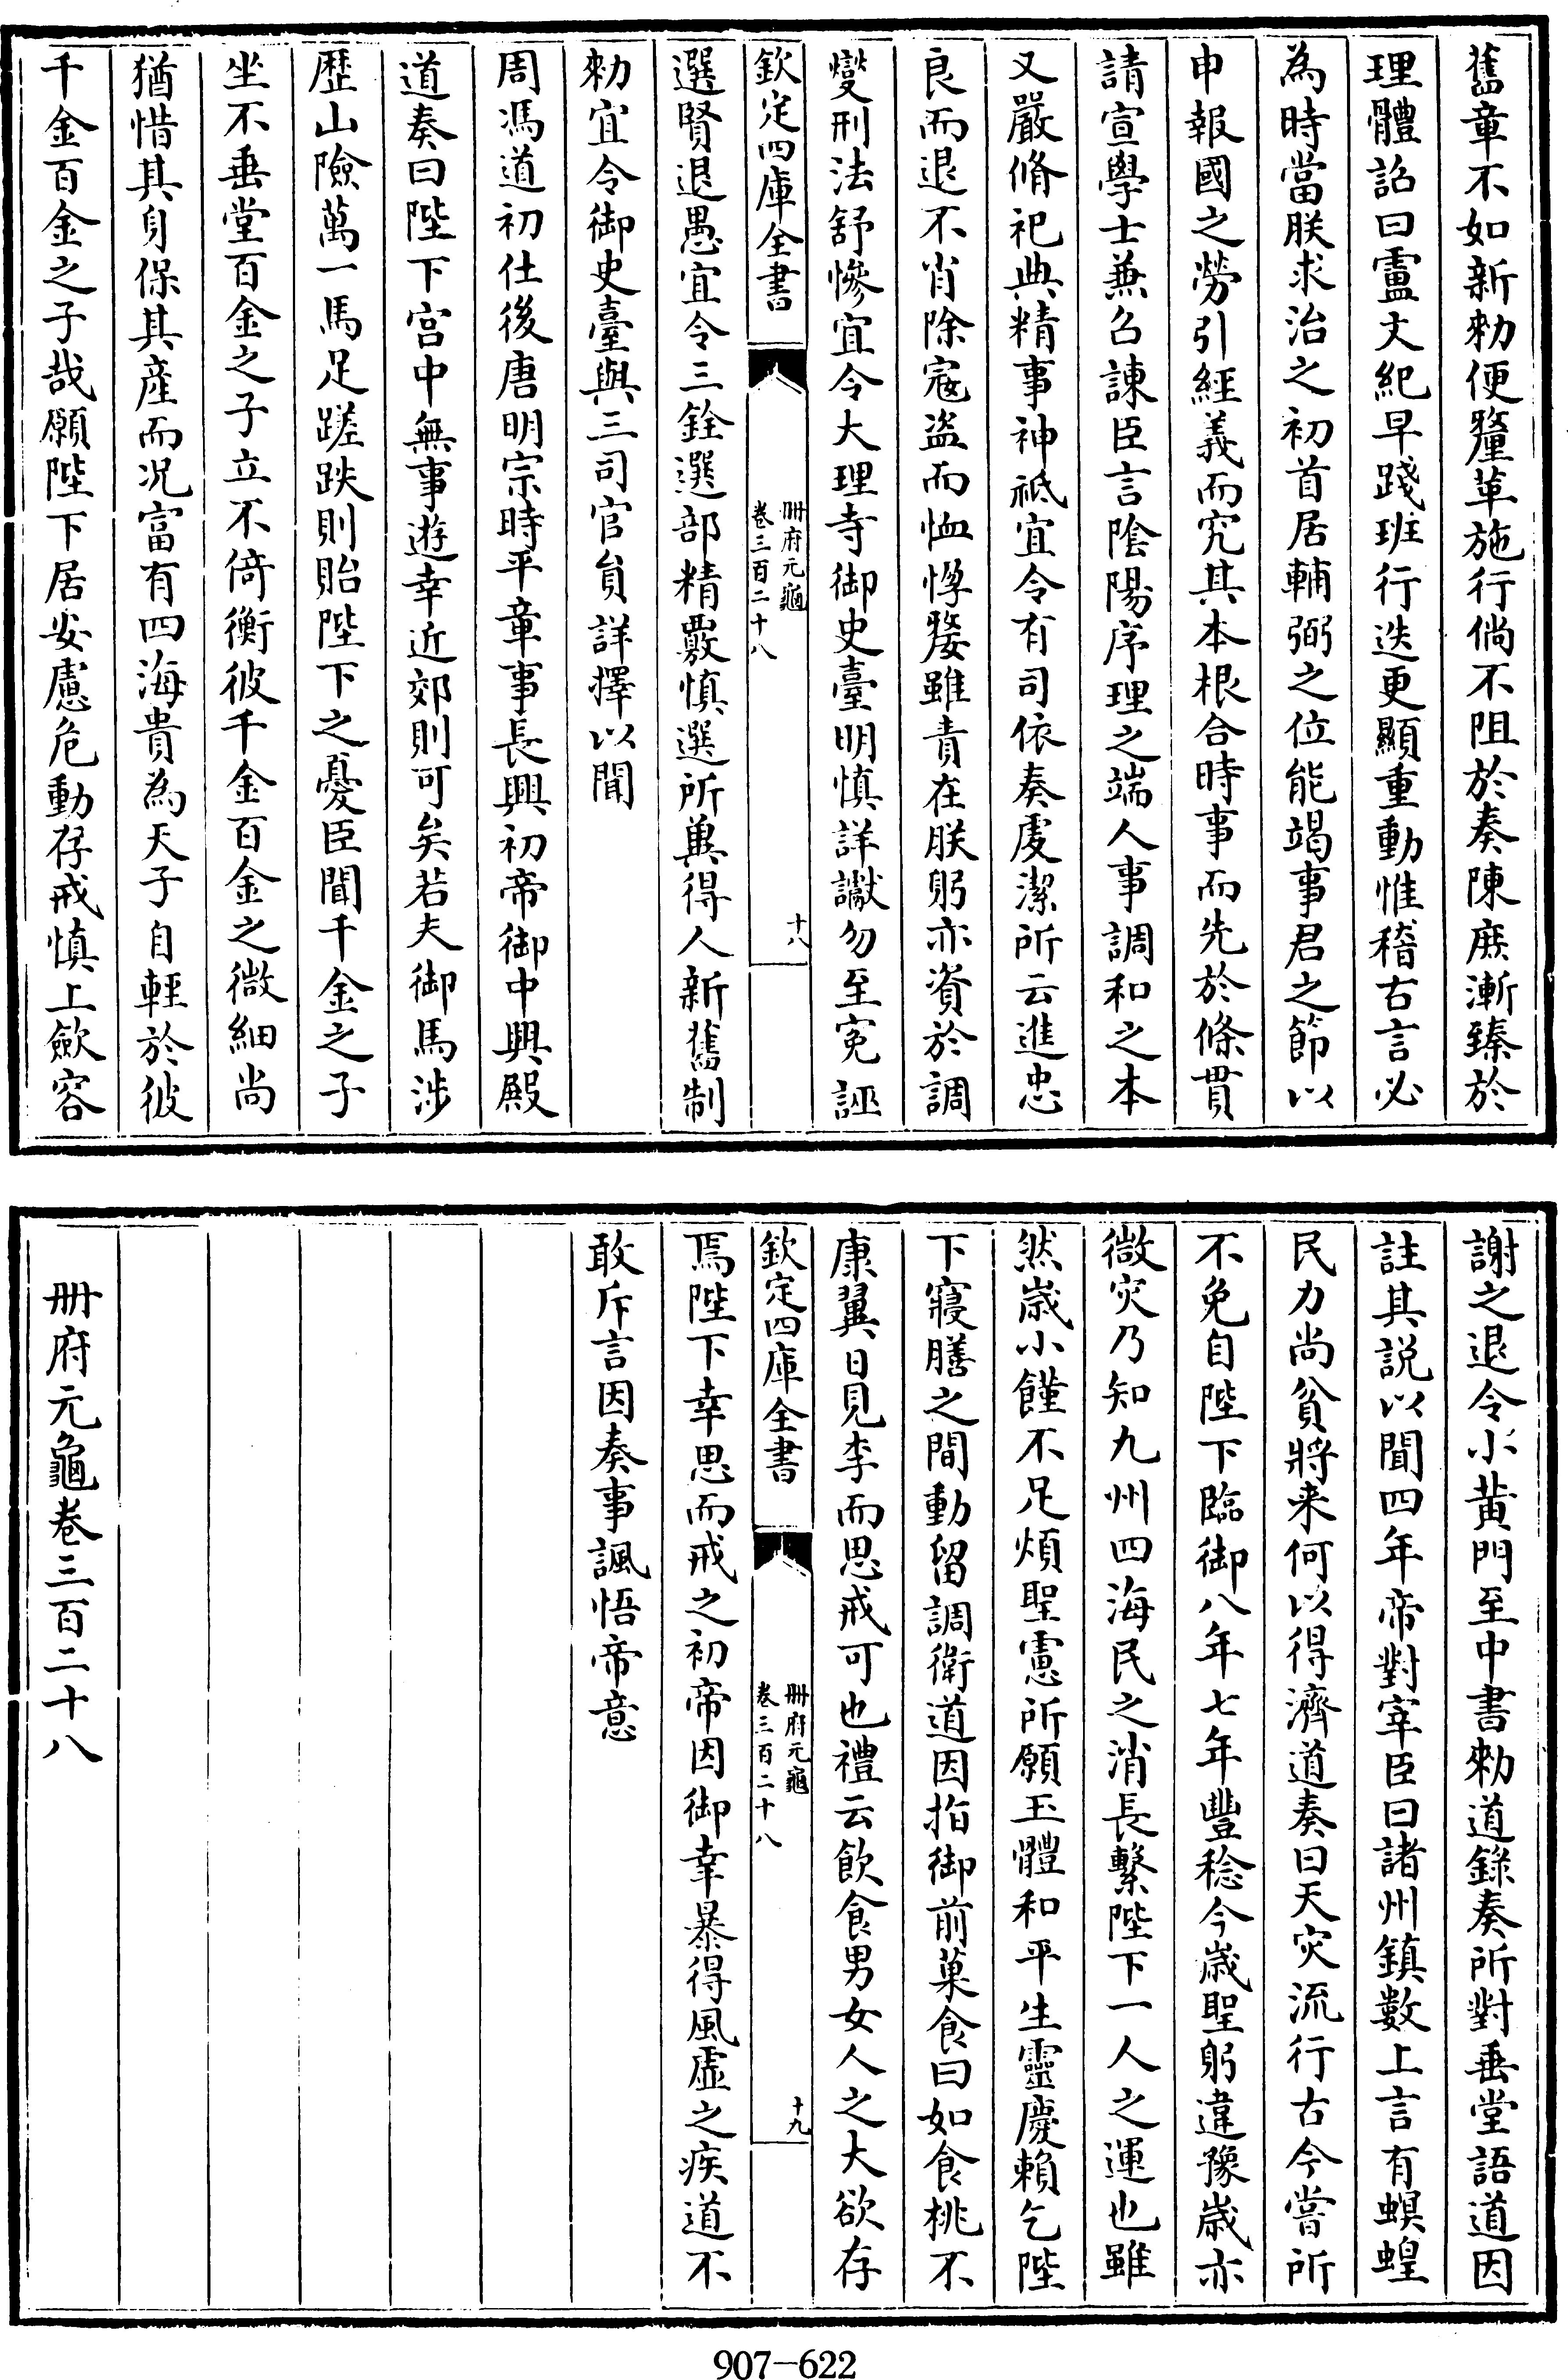 舊章不如新勑便釐革施行倘不阻於奏陳庶漸臻於
理體詔曰盧文紀早踐班行迭更顯重動惟稽古言必
為時當朕求治之初首居輔弼之位能竭事君之節以
申報國之勞引經義而究其本根合時事而先於條貫
請宣學士兼召諫臣言陰陽序理之端人事調和之本
又嚴脩祀典精事神祗宜令有司依奏虔潔所云進忠
良而退不肖除寇盜而恤惸嫠雖責在朕躬亦資於調
燮刑法舒慘宜令大理寺御史臺明慎詳讞勿至寃誣
欽定四庫全書
冊府元龜
卷三百二十八
十八
選賢退愚宜令三銓選部精覈慎選所兾得人新舊制
勑宜令御史臺與三司官貟詳擇以聞
周馮道初仕後唐明宗時平章事長興初帝御中興殿
道奏曰陛下宫中無事遊幸近郊則可矣若夫御馬涉
歴山險萬一馬足蹉跌則貽陛下之憂臣聞千金之子
坐不垂堂百金之子立不倚衡彼千金百金之微細尚
猶惜其身保其產而况富有四海貴為天子自輕於彼
千金百金之子哉願陛下居安慮危動存戒慎上歛容
謝之退令小黄門至中書勑道錄奏所對垂堂語道因
註其説以聞四年帝對宰臣曰諸州鎮數上言有螟蝗
民力尚貧將来何以得濟道奏曰天灾流行古今嘗所
不免自陛下臨御八年七年豐稔今歲聖躬違豫歲亦
微灾乃知九州四海民之消長繫陛下一人之運也雖
然歲小饉不足煩聖慮所願玉體和平生靈慶賴乞陛
下寢膳之間動留調衛道因指御前菓食曰如食桃不
康翼日見李而思戒可也禮云飲食男女人之大欲存
欽定四庫全書
冊府元龜
卷三百二十八
十九
焉陛下幸思而戒之初帝因御幸暴得風虛之疾道不
敢斥言因奏事諷悟帝意
冊府元龜卷三百二十八
907-622